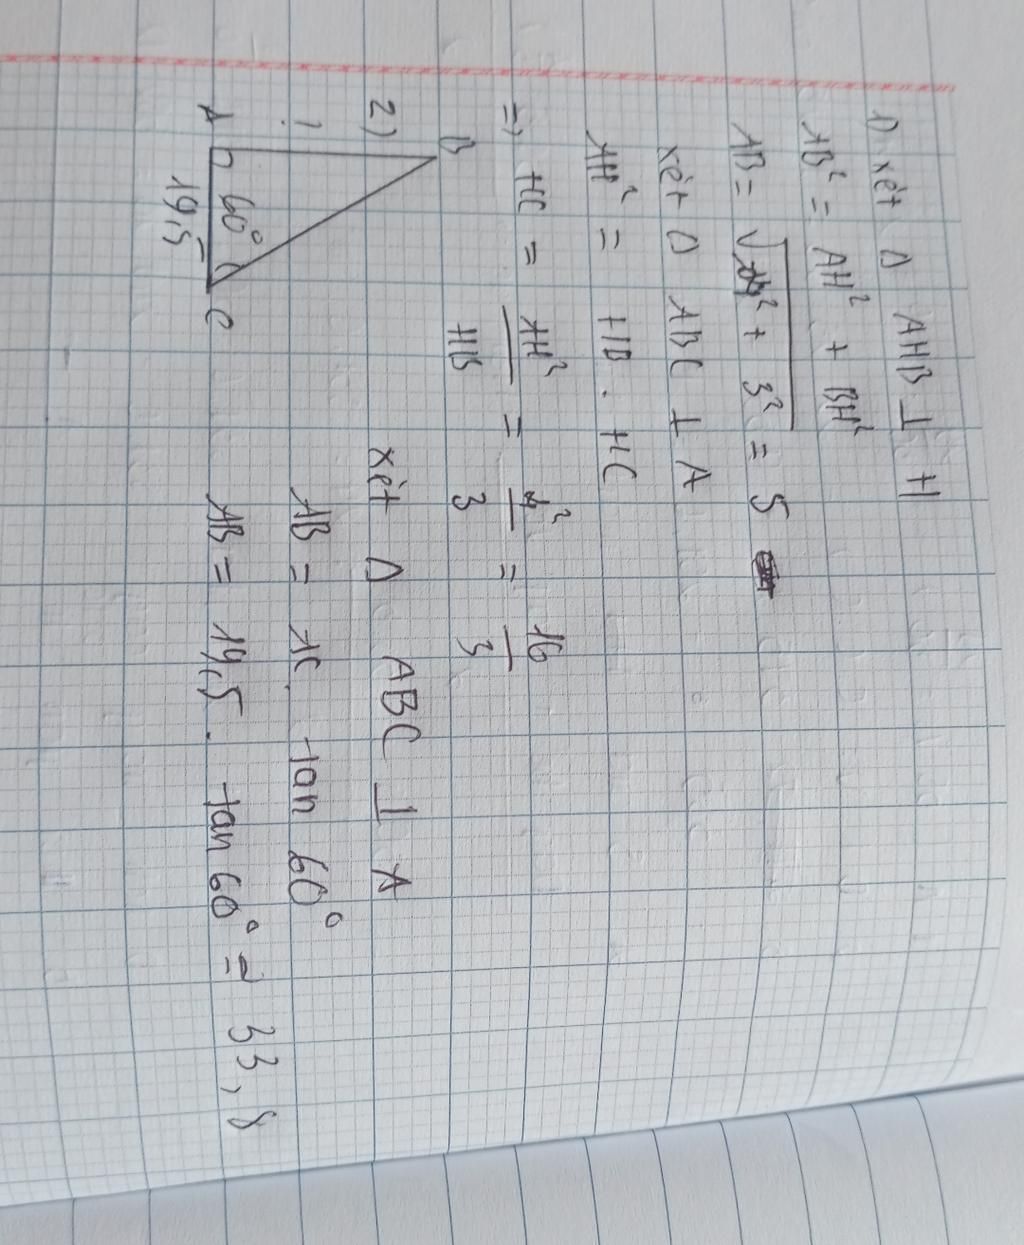 1) xét Δ AHB ⊥ H
AB² = AH² + BH²
AB = √4² + 3² = 5
xét Δ ABC ⊥ A
AH² = HB . HC
=> HC = AH²/HB = 4²/3 = 16/3
B
2) xét Δ ABC ⊥ A
! AB = AC . tan 60°
A 60° C AB = 19,5 . tan 60° ≈ 33,8
19,5